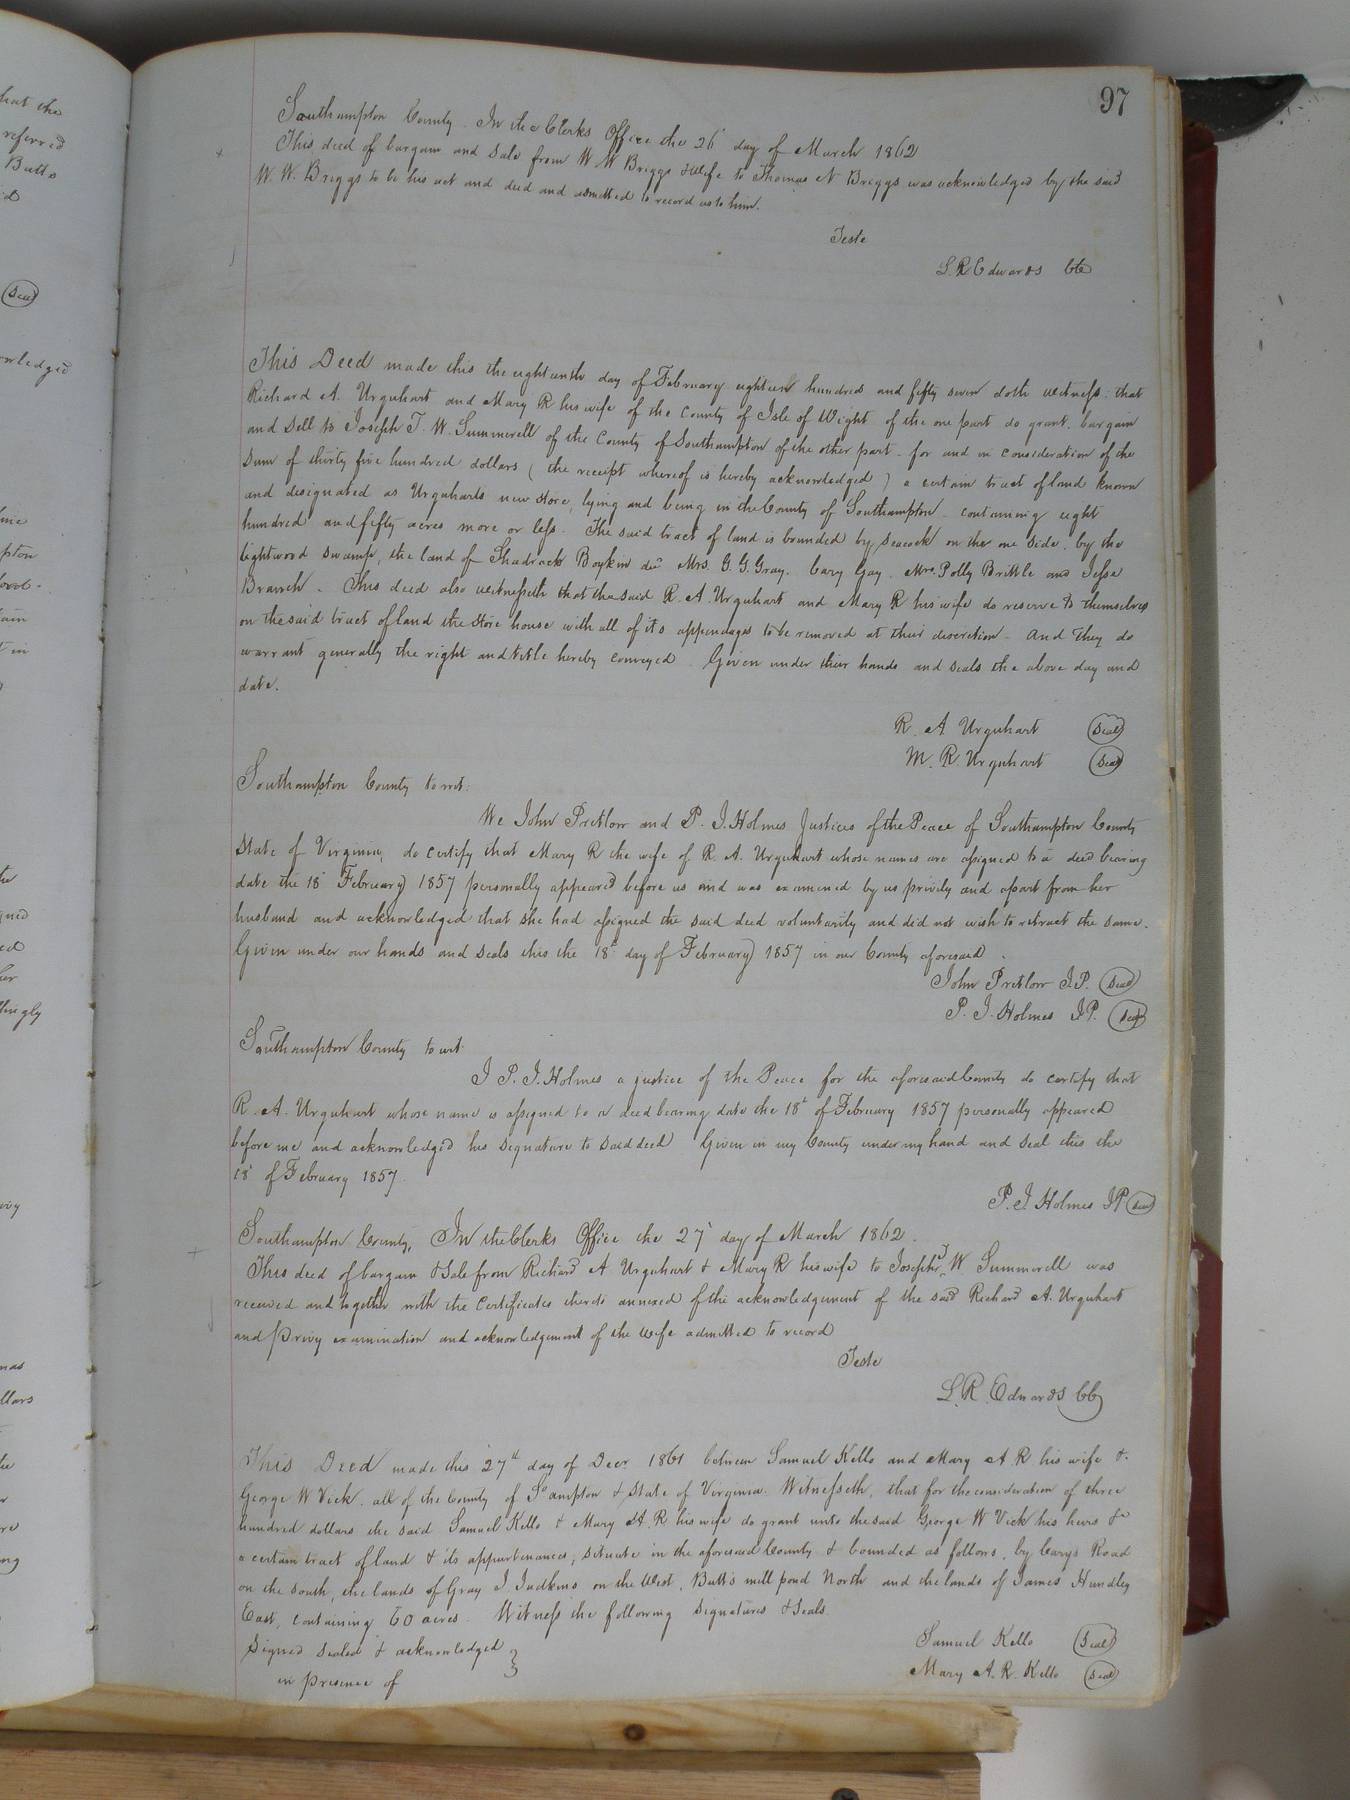 97
Southampton County. In the Clerks Office the 26' day of March 1862
This deed of bargain and sale from W W Briggs & Wife to Thomas N Briggs was acknowledged by the said
W. W. Briggs to be his act and deed and admitted to record as to him.
Teste
L R Edwards Clk
This Deed made this the eighteenth day of February eighteen hundred and fifty seven doth witness, that
Richard A. Urquhart and Mary R his wife of the County of Isle of Wight of the one part do grant, bargain
and sell to Joseph T. W. Summerell of the County of Southampton of the other part - for and in consideration of the
sum of thirty five hundred dollars (the receipt whereof is hereby acknowledged) a certain tract of land known
and designated as Urquharts new store, lying and being in the County of Southampton - containing eight
hundred and fifty acres more or less. The said tract of land is bounded by Seacock on the one side, by the
lightwood swamp, the land of Shadrack Boykin decd Mrs. G. G. Gray. Cary Gay. Mrs. Polly Brittle and Jesse
Branch. This deed also witnesseth that the said R. A. Urquhart and Mary R his wife do reserve to themselves
on the said tract of land the store house with all of its appendages to be removed at their discretion - And They do
warrant generally the right and title hereby conveyed. Given under their hands and seals the above day and
date.
R. A Urquhart (Seal)
M. R. Urquhart (Seal)
Southampton County to wit:
We John Pretlow and P. J. Holmes Justices of the Peace of Southampton County
State of Virginia, do certify that Mary R the wife of R. A. Urquhart whose names are assigned to a deed bearing
date the 18' February 1857 personally appeared before us and was examined by us privily and apart from her
husband and acknowledged that she had assigned the said deed voluntarily and did not wish to retract the same.
Given under our hands and seals this the 18' day of February 1857 in our County aforesaid.
John Pretlow J.P. (Seal)
P. J. Holmes J.P. (Seal)
Southampton County to wit:
I P. J. Holmes a justice of the Peace for the aforesaid County do certify that
R. A. Urquhart whose name is assigned to a deed bearing date the 18' of February 1857 personally appeared
before me and acknowledged his signature to said deed Given in my County under my hand and seal this the
18' of February 1857.
P. J. Holmes JP (Seal)
Southampton County, In the Clerks Office the 27' day of March 1862.
This deed of bargain & Sale from Richard A Urquhart & Mary R his wife to Joseph T W Summerell was
received and together with the certificates thereto annexed of the acknowledgement of the said Richard A. Urquhart
and Privy examination and acknowledgement of the wife admitted to record
Teste
L. R. Edwards CC
This Deed made this 27th day of Decr 1861 between Samuel Kello and Mary A R his wife &
George W Vick, all of the County of S'ampton & State of Virginia. Witnesseth, that for the consideration of three
hundred dollars the said Samuel Kello & Mary A. R his wife do grant unto the said George W Vick his heirs &c
a certain tract of land & its appurtenances, situate in the aforesaid County & bounded as follows, by Carys Road
on the south, the lands of Gray J. Judkins on the West, Butts mill pond North and the lands of James Hundley
East, containing 60 acres. Witness the following signatures & seals.
Signed sealed & acknowledged
in presence of
Samuel Kello (Seal)
Mary A. R. Kello (Seal)